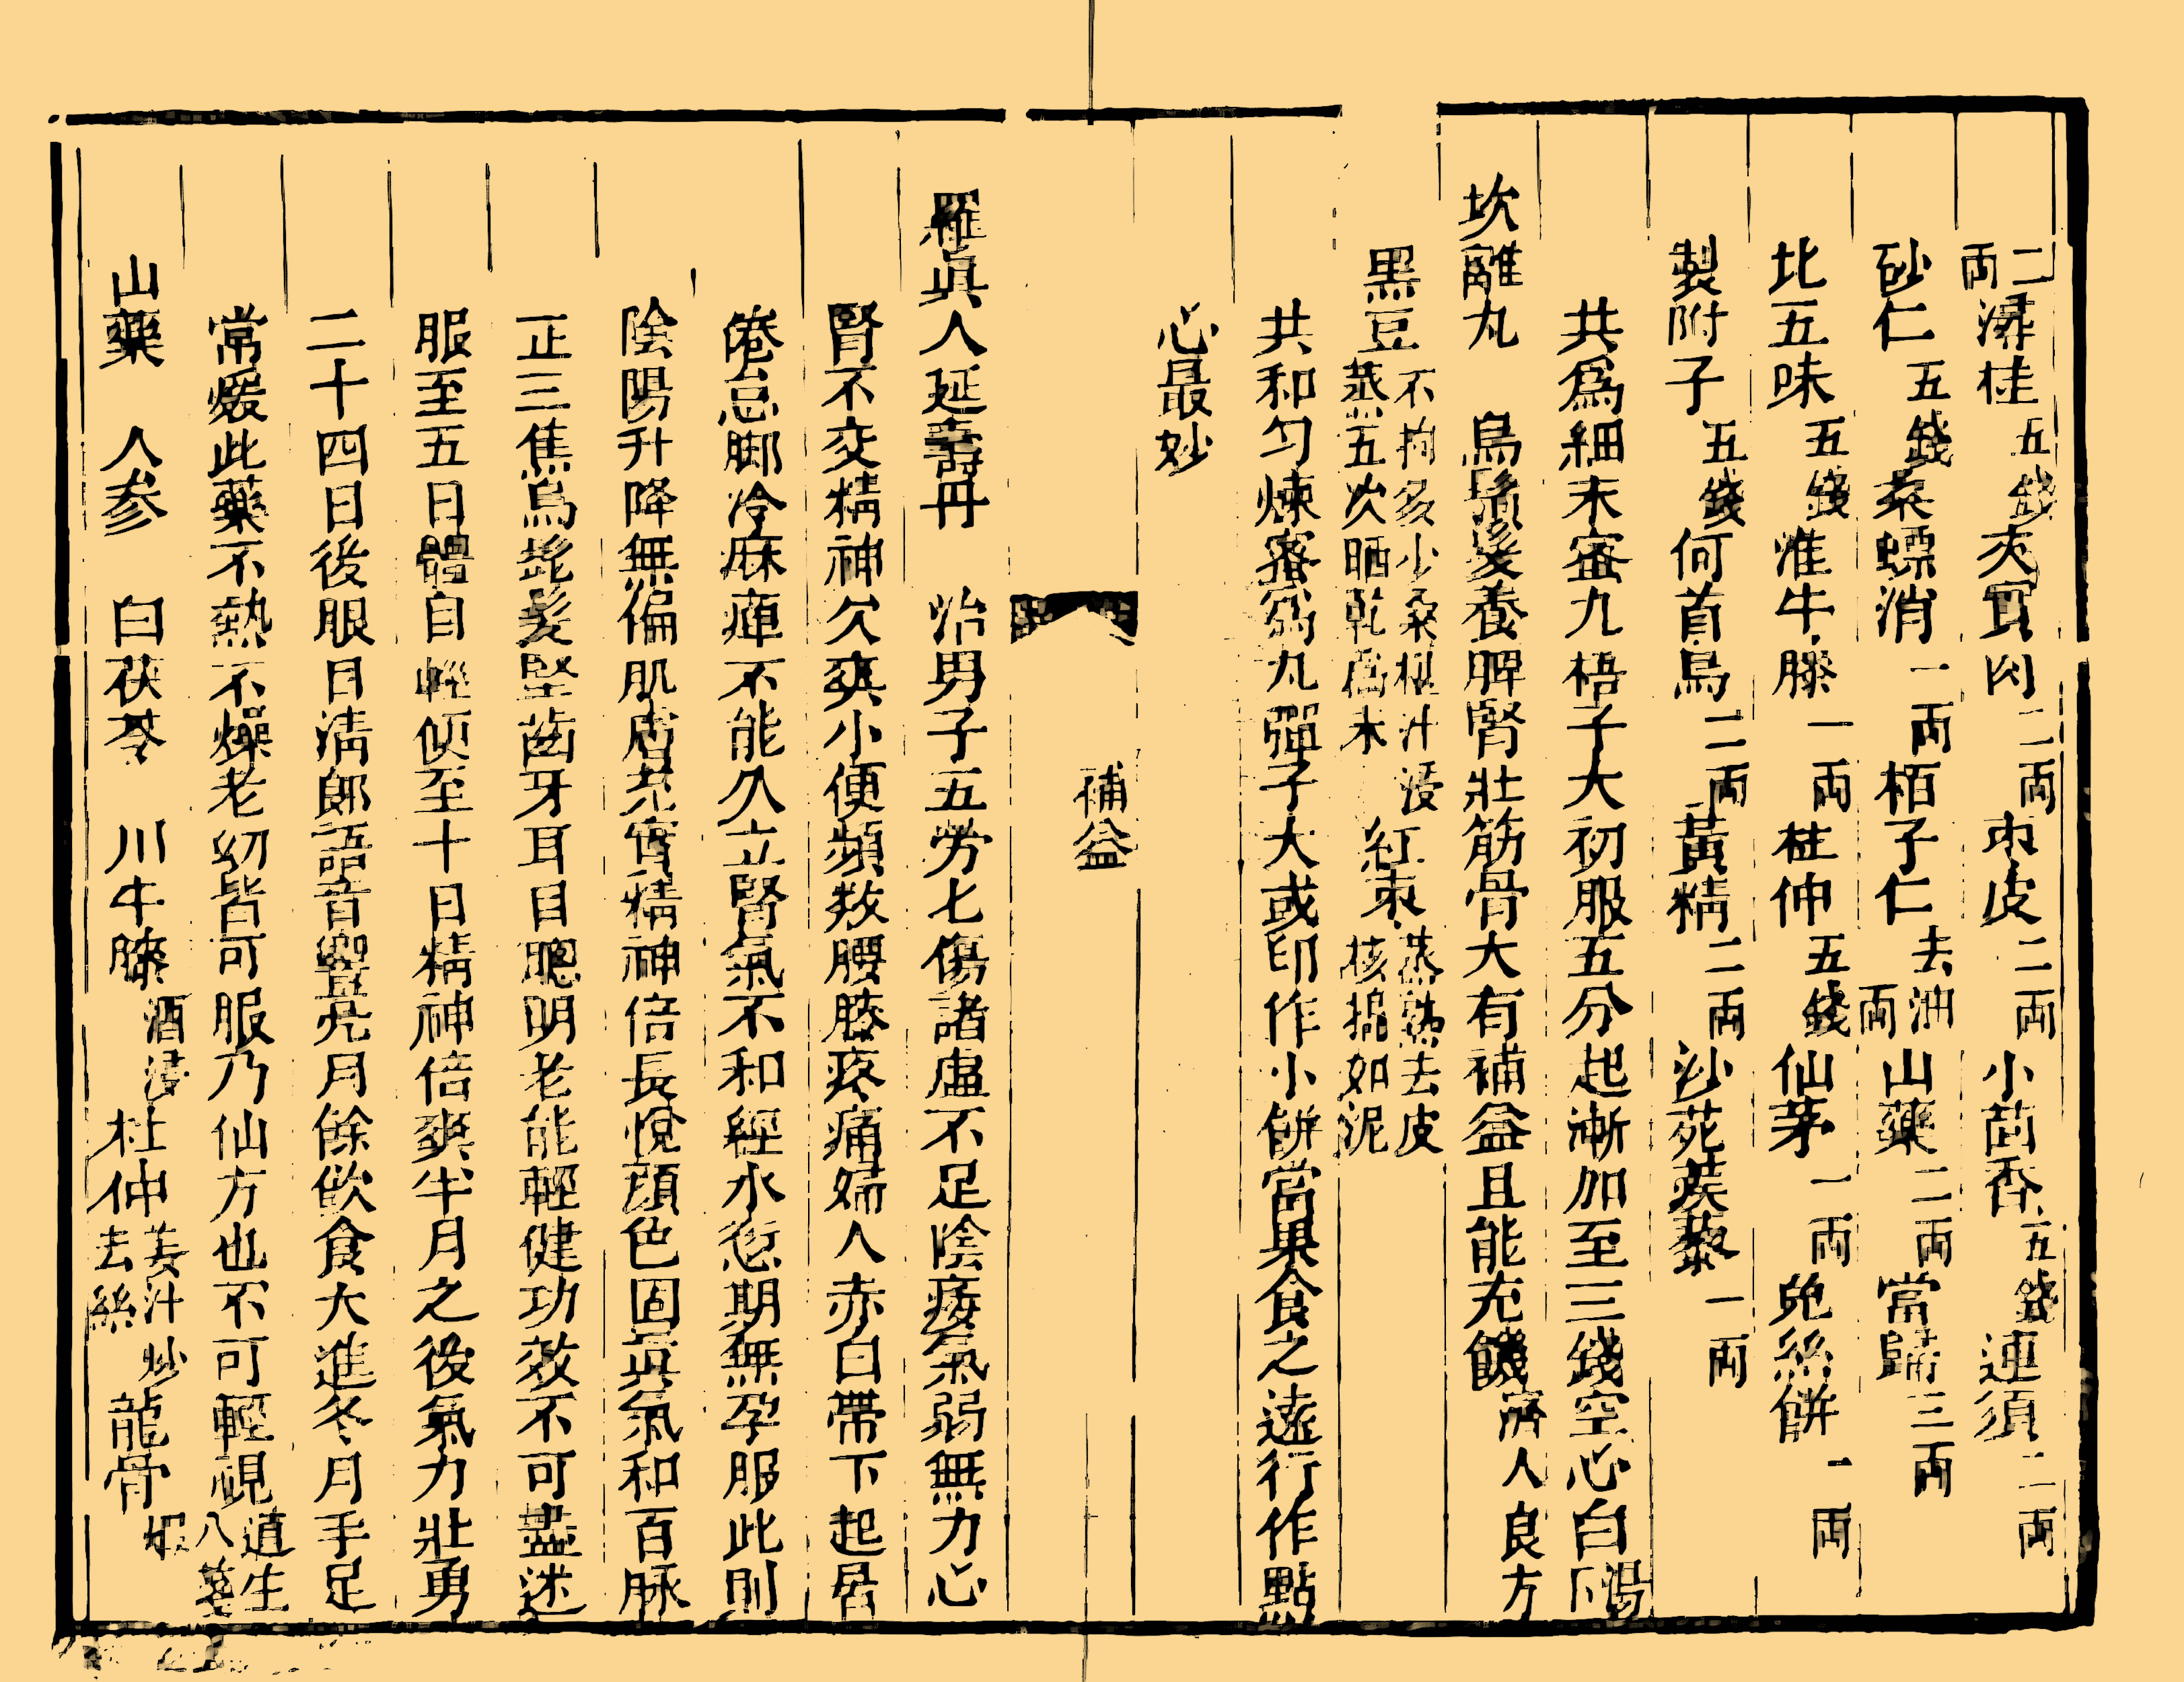 二兩瀞桂五錢夾實肉二兩朿皮二兩小茴香五錢連須二兩
砂仁五錢桑螵消一兩栢子仁去油兩山藥二兩當歸三兩
北五味五錢淮牛膝一兩杜仲五錢仙茅一兩兔絲餅一兩
製附子五錢何首烏二兩黃精二兩沙苑蒺藜一兩
共爲細末蜜九梧子大初服五分起漸加至三錢空心白湯下
坎離丸 烏鬚髮養脾腎壯筋骨大有補益且能充饑濟人良方
黑豆不拘多少桑椹汁浸蒸五次晒乾爲末 紅枣蒸熟去皮核搗如泥
共和匀煉蜜爲丸彈子大或印作小餅當果食之遠行作點
心最妙
補益
羅眞人延壽丹 治男子五勞七傷諸虛不足陰痿氣弱無力心
腎不交精神欠爽小便頻數腰膝疼痛婦人赤白帶下起居
倦怠脚冷麻痺不能久立腎氣不和經水愆期無孕服此則
陰陽升降無偏肌膚充實精神倍長悅顏色固眞氣和百脉
正三焦烏髭髮堅齒牙耳目聰明老能輕健功效不可盡述
服至五日體自輕便至十日精神倍爽半月之後氣力壯勇
二十四日後眼目淸郎語音響亮月餘飮食大進冬月手足
常煖此藥不熱不燥老幼皆可服乃仙方也不可輕視道生八箋
山藥 人参 白茯苓 川牛膝酒浸 杜仲姜汁炒去絲 龍骨煅